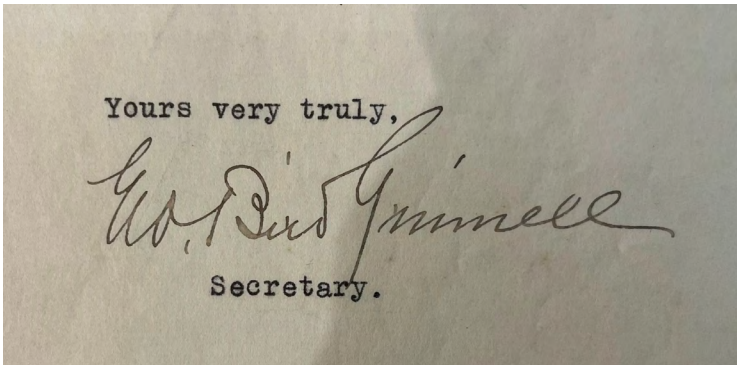 Yours very truly,
Geo. Bird Grinnell
Secretary.